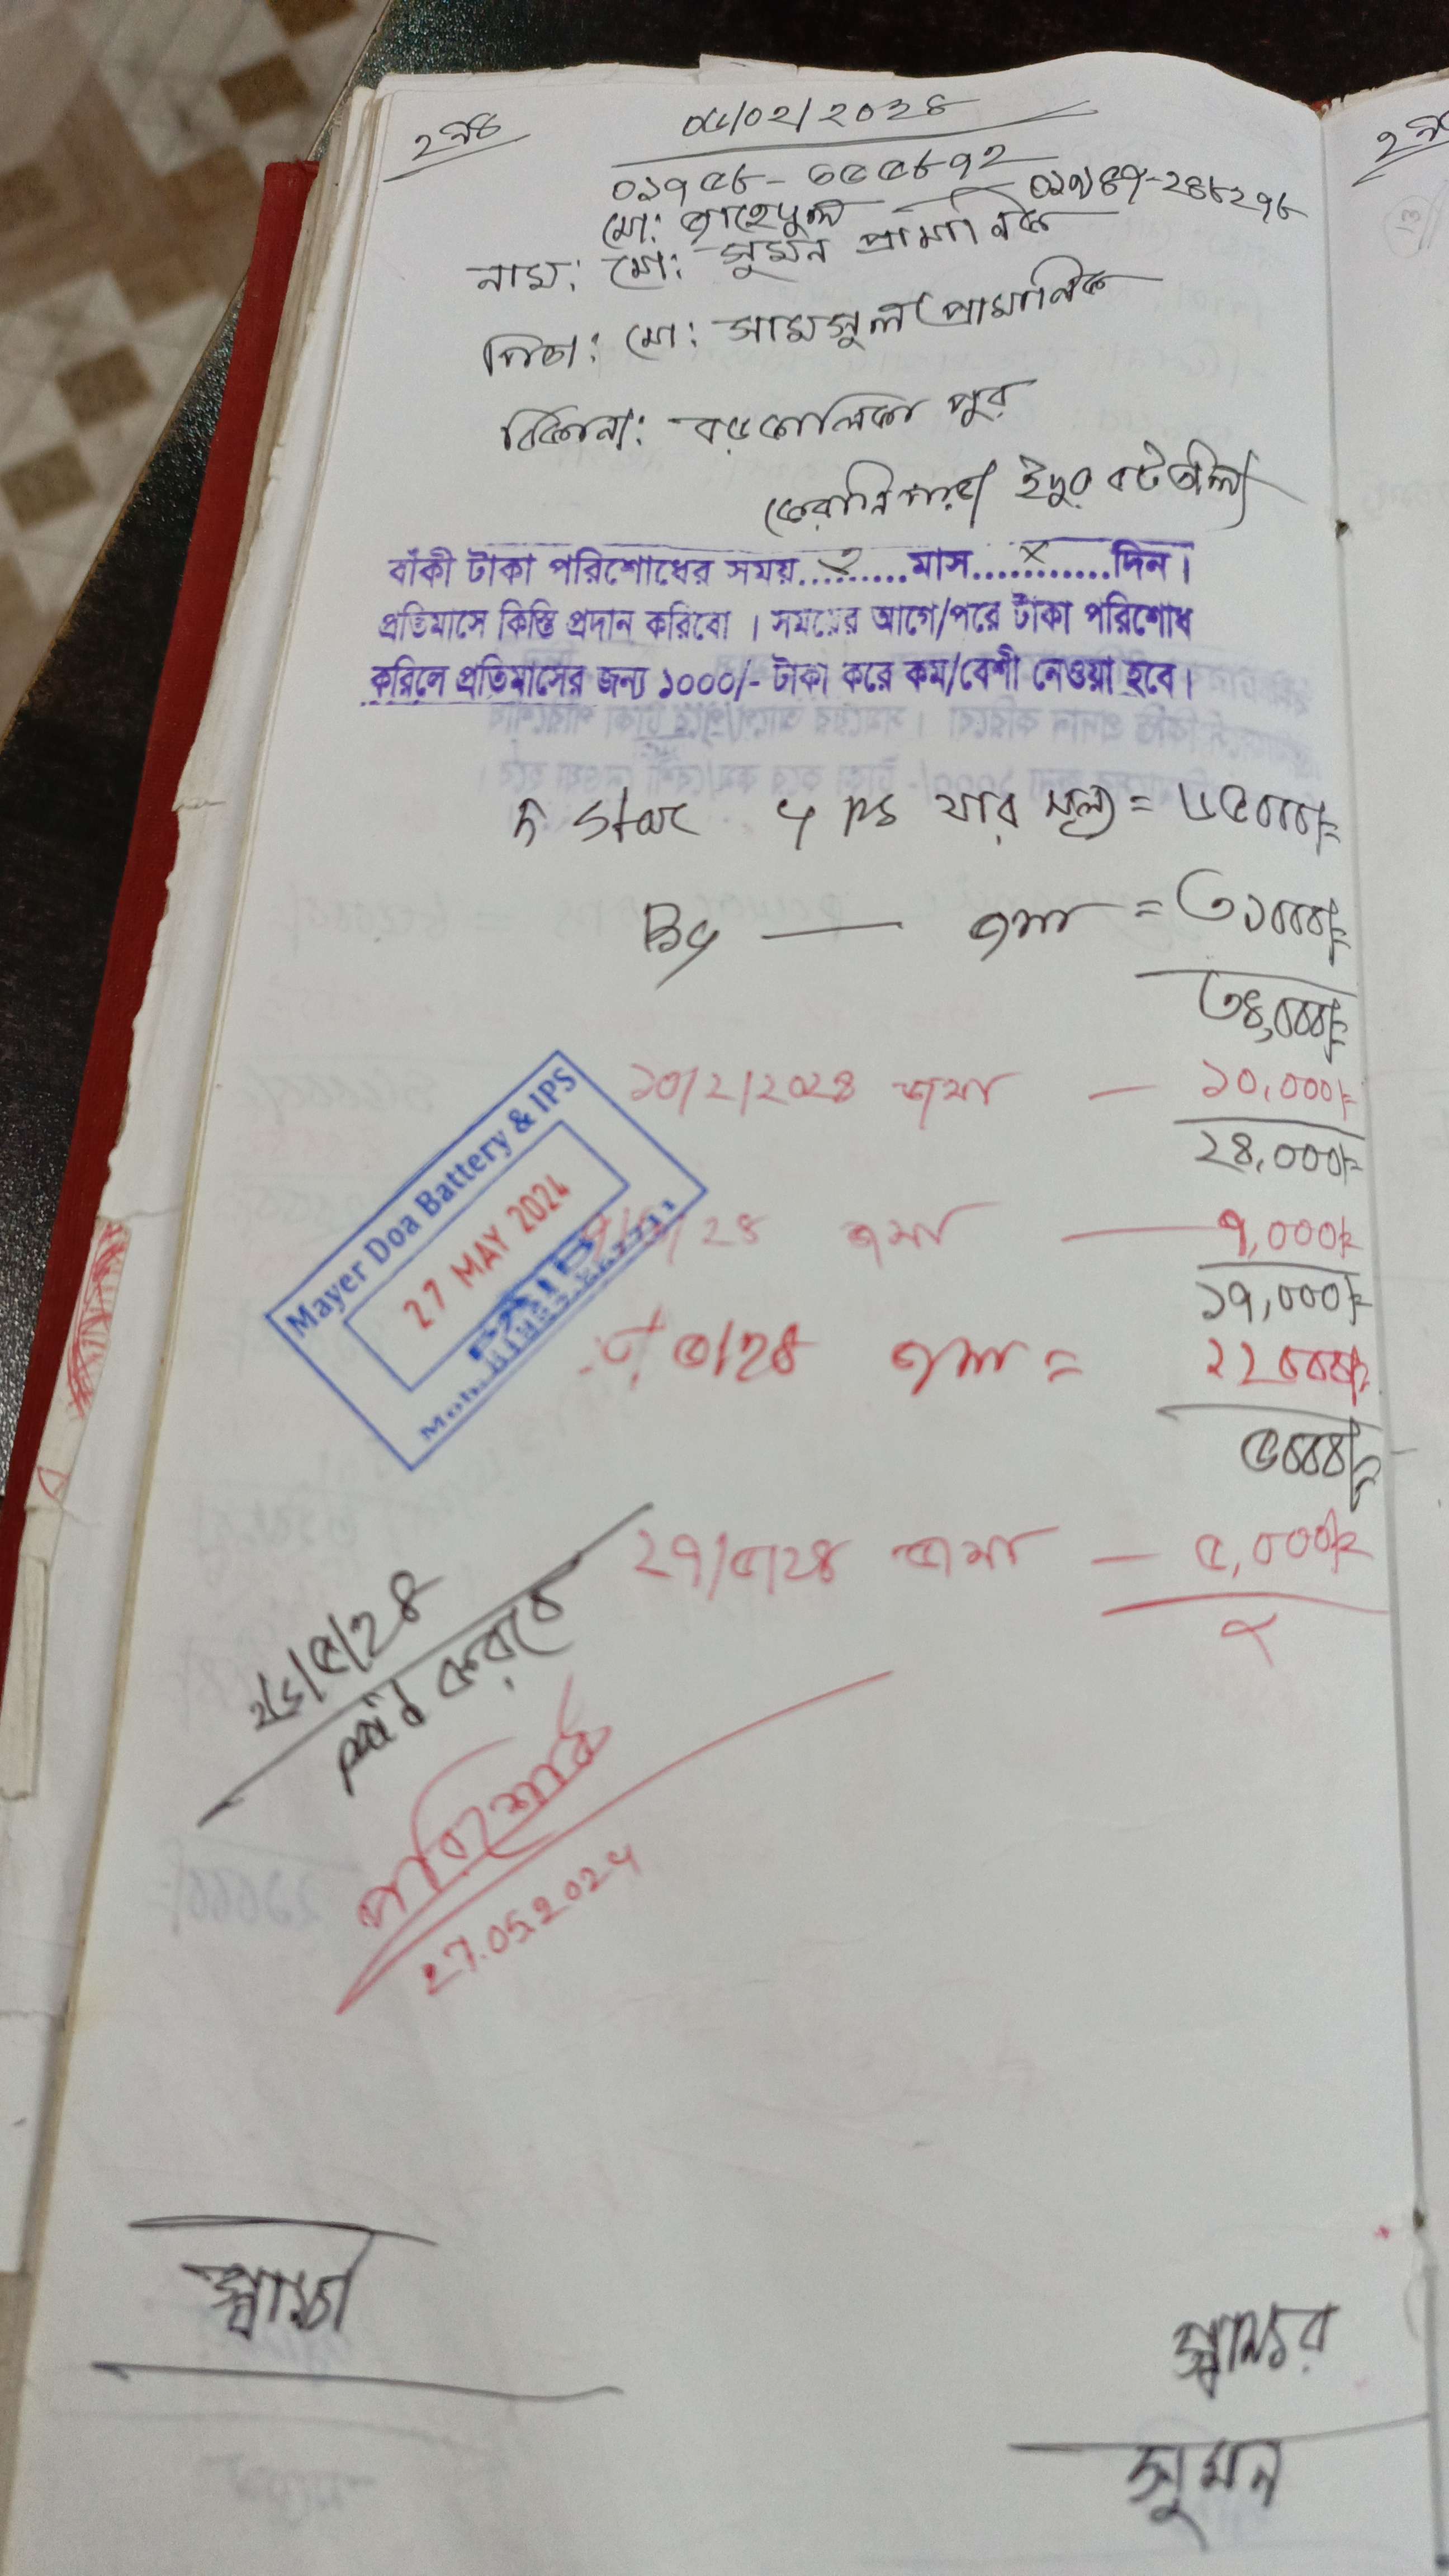 ২৯৪
০৫/০২/২০২৪
০১৭৫৮-৬৫৫৮৭২
মো:
নাম: মো: সুমন প্রামানিক
পিতা: মো: সামসুল প্রামানিক
ঠিকানা: বড়কালিকা পুর
বটতলি
বাঁকী টাকা পরিশোধের সময়....২.....মাস.....×......দিন।
প্রতিমাসে কিস্তি প্রদান করিবো । সময়ের আগে/পরে টাকা পরিশোধ
করিলে প্রতিমাসের জন্য ১০০০/- টাকা করে কম/বেশী নেওয়া হবে।
Star 4 Ps যার মূল্য = ৬৫০০০/=
By — জমা = ৩১০০০/=
৩৪,০০০/=
১০/২/২০২৪ জমা — ১০,০০০/=
২৪,০০০/=
/২৪ জমা — ৭,০০০/=
১৭,০০০/=
২৪ জমা = ১২০০০/=
৫০০০/=
২৭/৫/২৪ জমা — ৫,০০০/=
Mayer Doa Battery & IPS
27 MAY 2024
PAID
২৬/৫/২৪
করবে
পরিশোধ
27.05.2024
স্বাক্ষর
সুমন